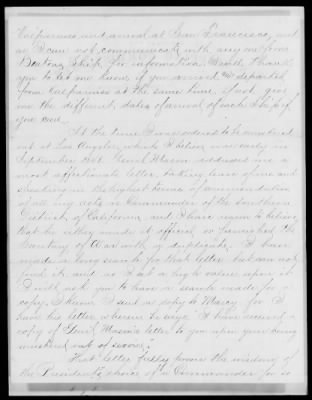 Valparaiso and arrival at San Francisco, and
as I can not communicate with any one from
Boston Ship for information I will thank
you to let me know if you arrived and departed
from Valparaiso at the same time, if not give
me the different dates of arrival of each Ship if
you can.
At the time I was ordered to be mustered
out at Los Angeles, which I believe was early in
September 1848 Genl Mason addressed me a
most affectionate letter, taking leave of me and
speaking in the highest terms of commendation
of all my acts as Commander of the Southern
District of California, and I have reason to believe
that he either made it official or furnished the
Secretary of War with a duplicate. I have
made a long search for that letter but can not
find it, and as I set a high value upon it
I will ask you to have a search made for a
copy. I know I sent a copy to Marcy for I
have his letter wherein he says "I have received a
copy of Genl Mason's letter to you upon your being
mustered out of service."
That letter fully proves the wisdom of
the President's choice of a Commander for so